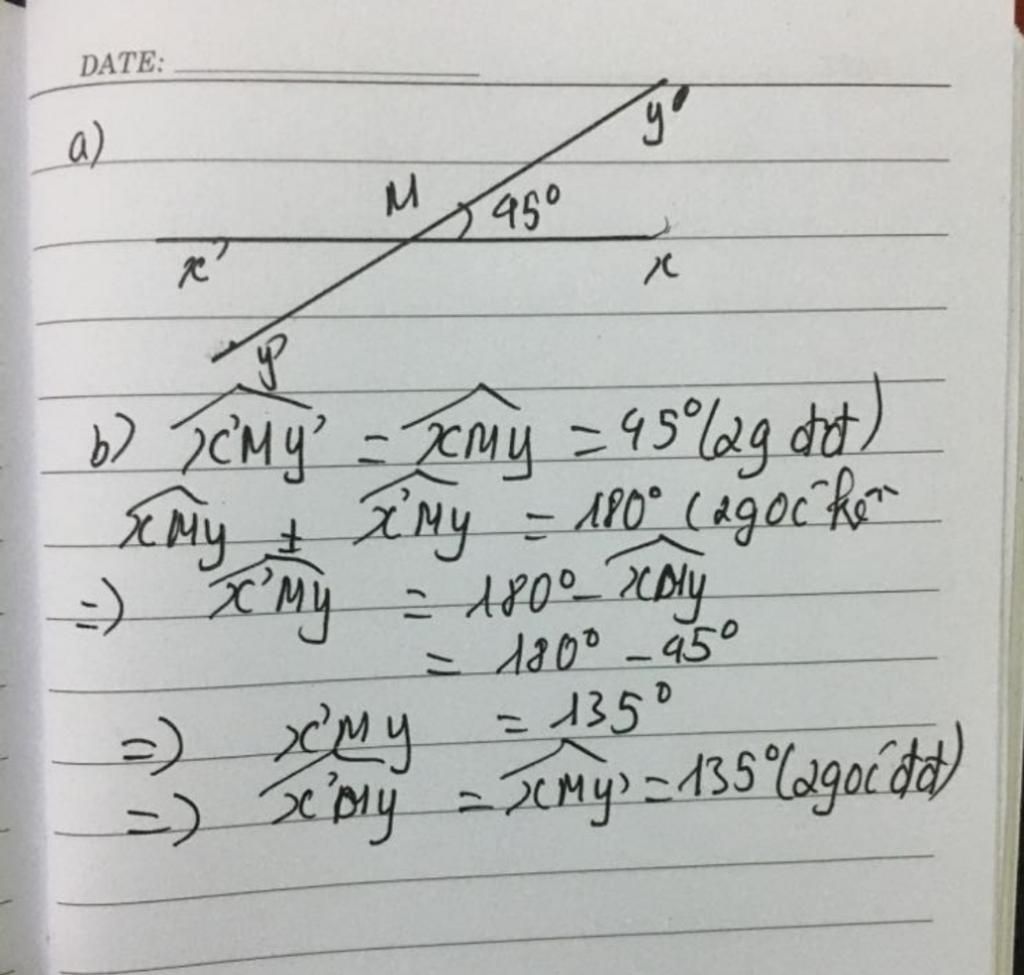 DATE:
a)
y'
M 45°
x' x
y
b) x'My' = xMy = 45° (2g đđ)
xMy + x'My = 180° (2góc kề
=) x'My = 180° - xMy
= 180° - 45°
=) x'My = 135°
=) x'My = xMy' = 135° (2góc đđ)